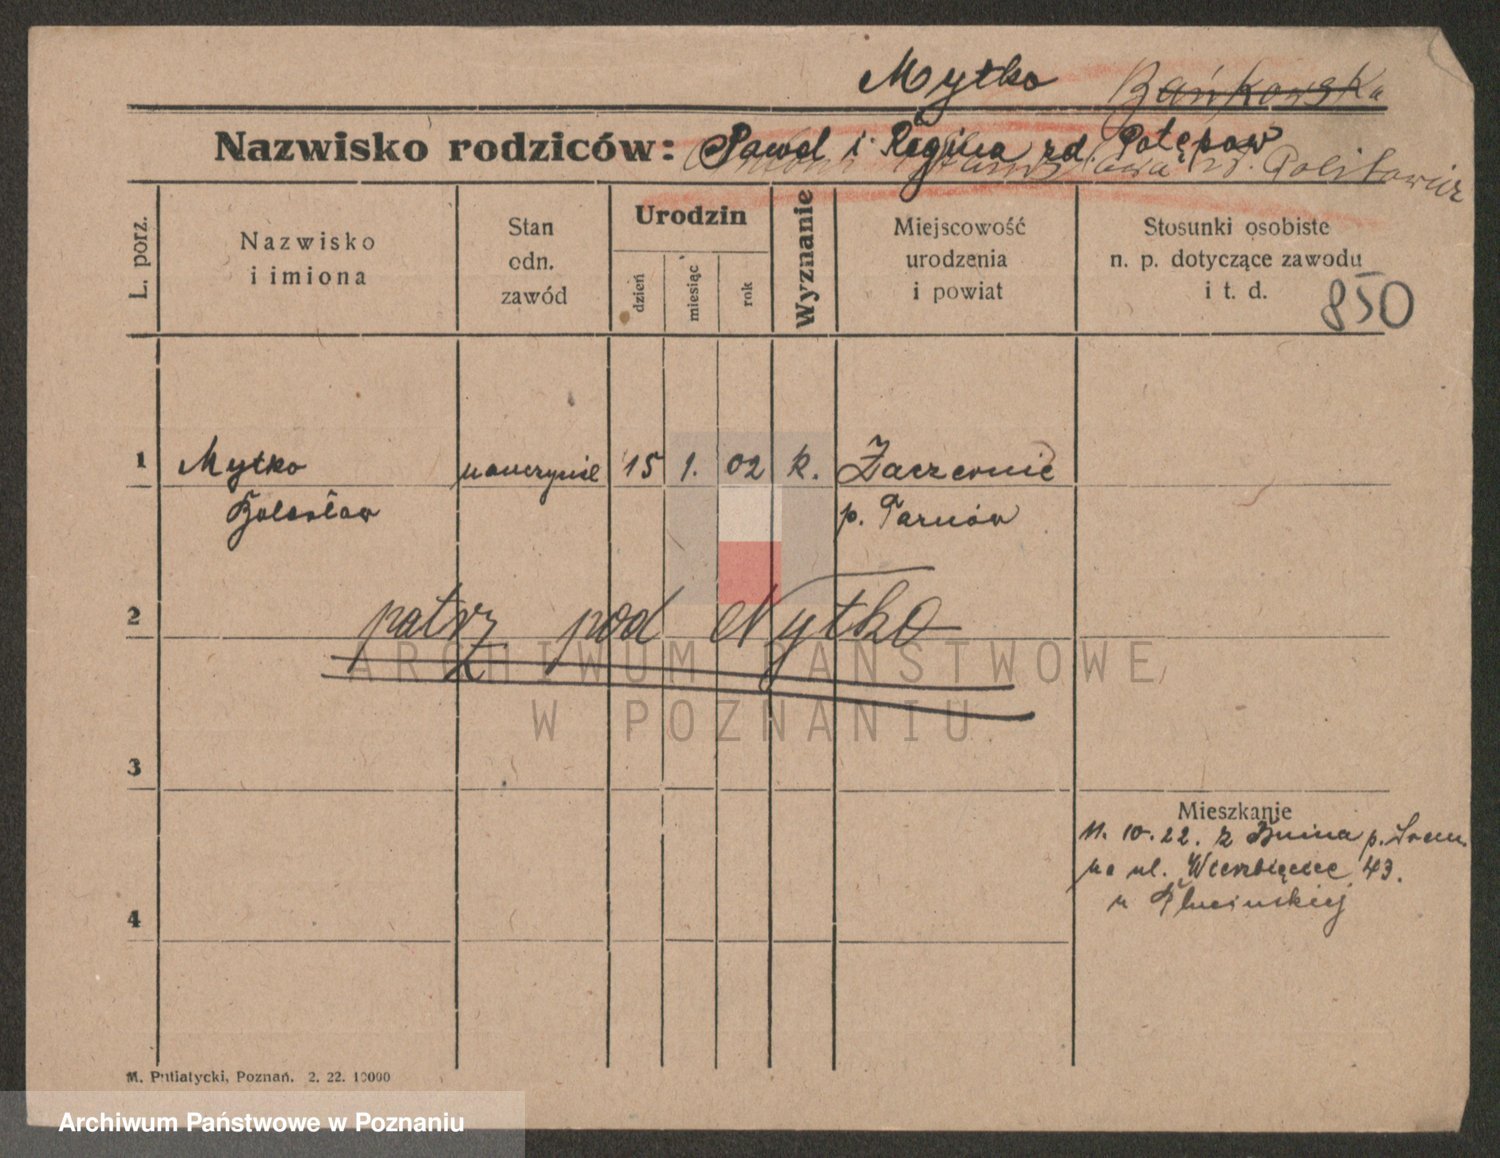 Mytko Bańkowska
Nazwisko rodziców: Paweł i Regina rd. Potępow
rd. Politowicz
L. porz.
Nazwisko
i imiona
Stan
odn.
zawód
Urodzin
dzień
miesiąc
rok
Wyznanie
Miejscowość
urodzenia
i powiat
Stosunki osobiste
n. p. dotyczące zawodu
i t. d.
850
1 Mytko nauczyciel 15 1. 02 k. Zaczernie
Bolesław p. Tarnów
2 patrz pod Nytko
ARCHIWUM PAŃSTWOWE
W POZNANIU
3
Mieszkanie
11. 10. 22. z Bnina p. Śrem
na ul. Wierzbięcice 43.
u Plucińskiej
4
M. Putiatycki, Poznań. 2. 22. 10000
Archiwum Państwowe w Poznaniu